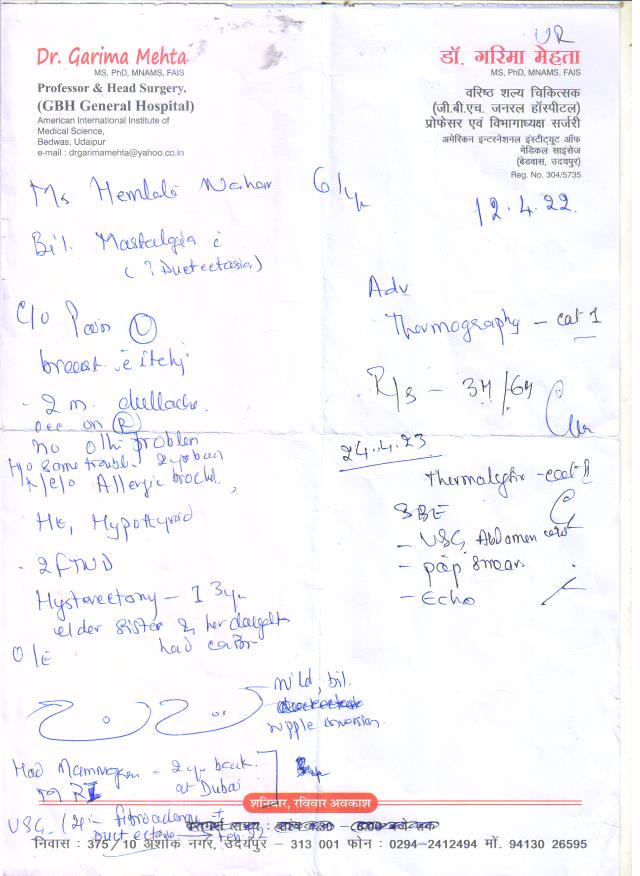 UR
Dr. Garima Mehta
MS, PhD, MNAMS, FAIS
Professor & Head Surgery.
(GBH General Hospital)
American International Institute of
Medical Science,
Bedwas, Udaipur
e-mail : drgarimamehta@yahoo.co.in
डॉ. गरिमा मेहता
MS, PhD, MNAMS, FAIS
वरिष्ठ शल्य चिकित्सक
(जी.बी.एच. जनरल हॉस्पीटल)
प्रोफेसर एवं विभागाध्यक्ष सर्जरी
अमेरिकन इन्टरनेशनल इंस्टीट्यूट ऑफ
मेडिकल साइंसेज
(बेडवास, उदयपुर)
Reg. No. 304/5735
12.4.22
Ms Nahar
Bil. Mastalgia c
( ? Ductectasia)
C/o Pain (L)
breast c itchy
- 2 m. dullache
occ on (R)
no oth problem
H/o same trouble 2 yr back
K/c/o Allergic
HE, Hypothyroid
- 2 FTND
Hysterectomy - 13 yr
elder sister & her daught
had
O/E
Mild, bil.
nipple
Had Mammogram - 2 yr back
at Dubai
MRI
USG
Adv
Thermography - cat 1
R/s - 3M/6M
24.4.23
SBE
- USG Abdomen
- pap smear
- Echo
शनिवार, रविवार अवकाश
निवास : 375/10 अशोक नगर, उदयपुर - 313 001 फोन : 0294-2412494 मों. 94130 26595